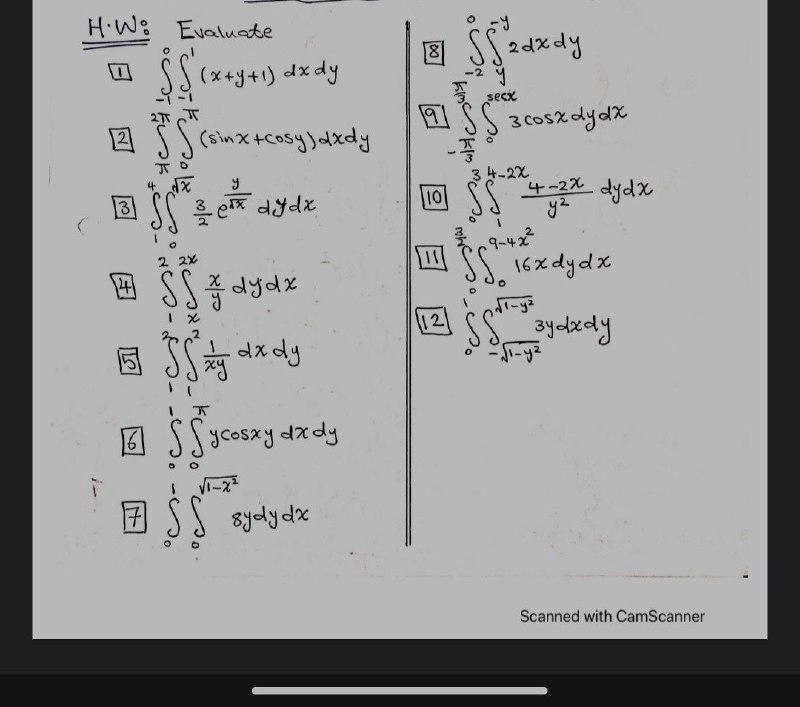 H.W: Evaluate
1 ∫_{-1}^{0} ∫_{-1}^{1} (x+y+1) dxdy
2 ∫_{π}^{2π} ∫_{0}^{π} (sinx+cosy) dxdy
3 ∫_{1}^{4} ∫_{0}^{√x} 3/2 e^{y/√x} dydx
4 ∫_{1}^{2} ∫_{x}^{2x} x/y dydx
5 ∫_{1}^{2} ∫_{1}^{2} 1/xy dxdy
6 ∫_{0}^{1} ∫_{0}^{π} ycosxy dxdy
7 ∫_{0}^{1} ∫_{0}^{√1-x²} 8ydydx
8 ∫_{-2}^{0} ∫_{y}^{-y} 2dxdy
9 ∫_{-π/3}^{π/3} ∫_{0}^{secx} 3cosxdydx
10 ∫_{0}^{3} ∫_{1}^{4-2x} 4-2x/y² dydx
11 ∫_{0}^{3/2} ∫_{0}^{9-4x²} 16xdydx
12 ∫_{0}^{1} ∫_{-√1-y²}^{√1-y²} 3ydxdy
Scanned with CamScanner